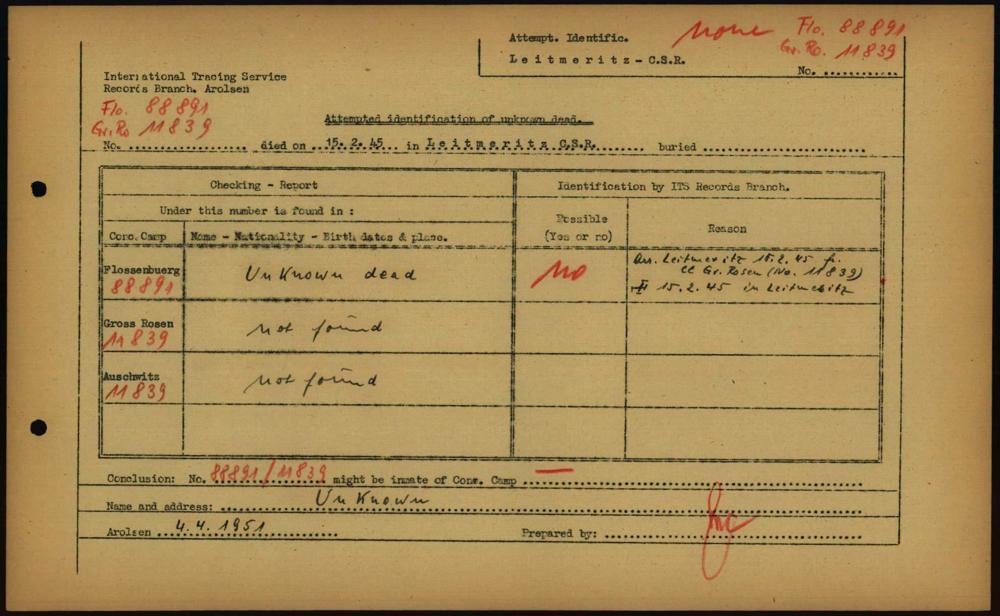 Attempt. Identific.
none
Flo. 88891
Leitmeritz - C.S.R.
Gr. Ro. 11839
No. ............
International Tracing Service
Records Branch, Arolsen
Flo. 88891
Attempted identification of unknown dead.
Gr. Ro 11839
No. .................. died on ..15. 2. 45.. in Leitmeritz C.S.R. ....... buried .........................
Checking - Report
Identification by ITS Records Branch.
Under this number is found in :
Possible
(Yes or no)
Reason
Conc. Camp
Name - Nationality - Birth dates & place.
Flossenbuerg
88891
Unknown dead
no
Arr. Leitmeritz 15.2.45 fr.
CC Gr. Rosen (No. 11839)
15.2.45 in Leitmeritz
Gross Rosen
11839
not found
Auschwitz
11839
not found
Conclusion: No. 88891/11839 might be inmate of Conc. Camp —
Name and address: Unknown
Arolsen 4.4.1951
Prepared by: ....................